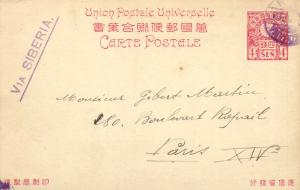 Union Postale Universelle
書葉合聯便郵國萬
CARTE POSTALE
4 SEN 4
VIA SIBERIA.
Monsieur Gilbert Martin
280. Boulevart Raspail
Paris XIV